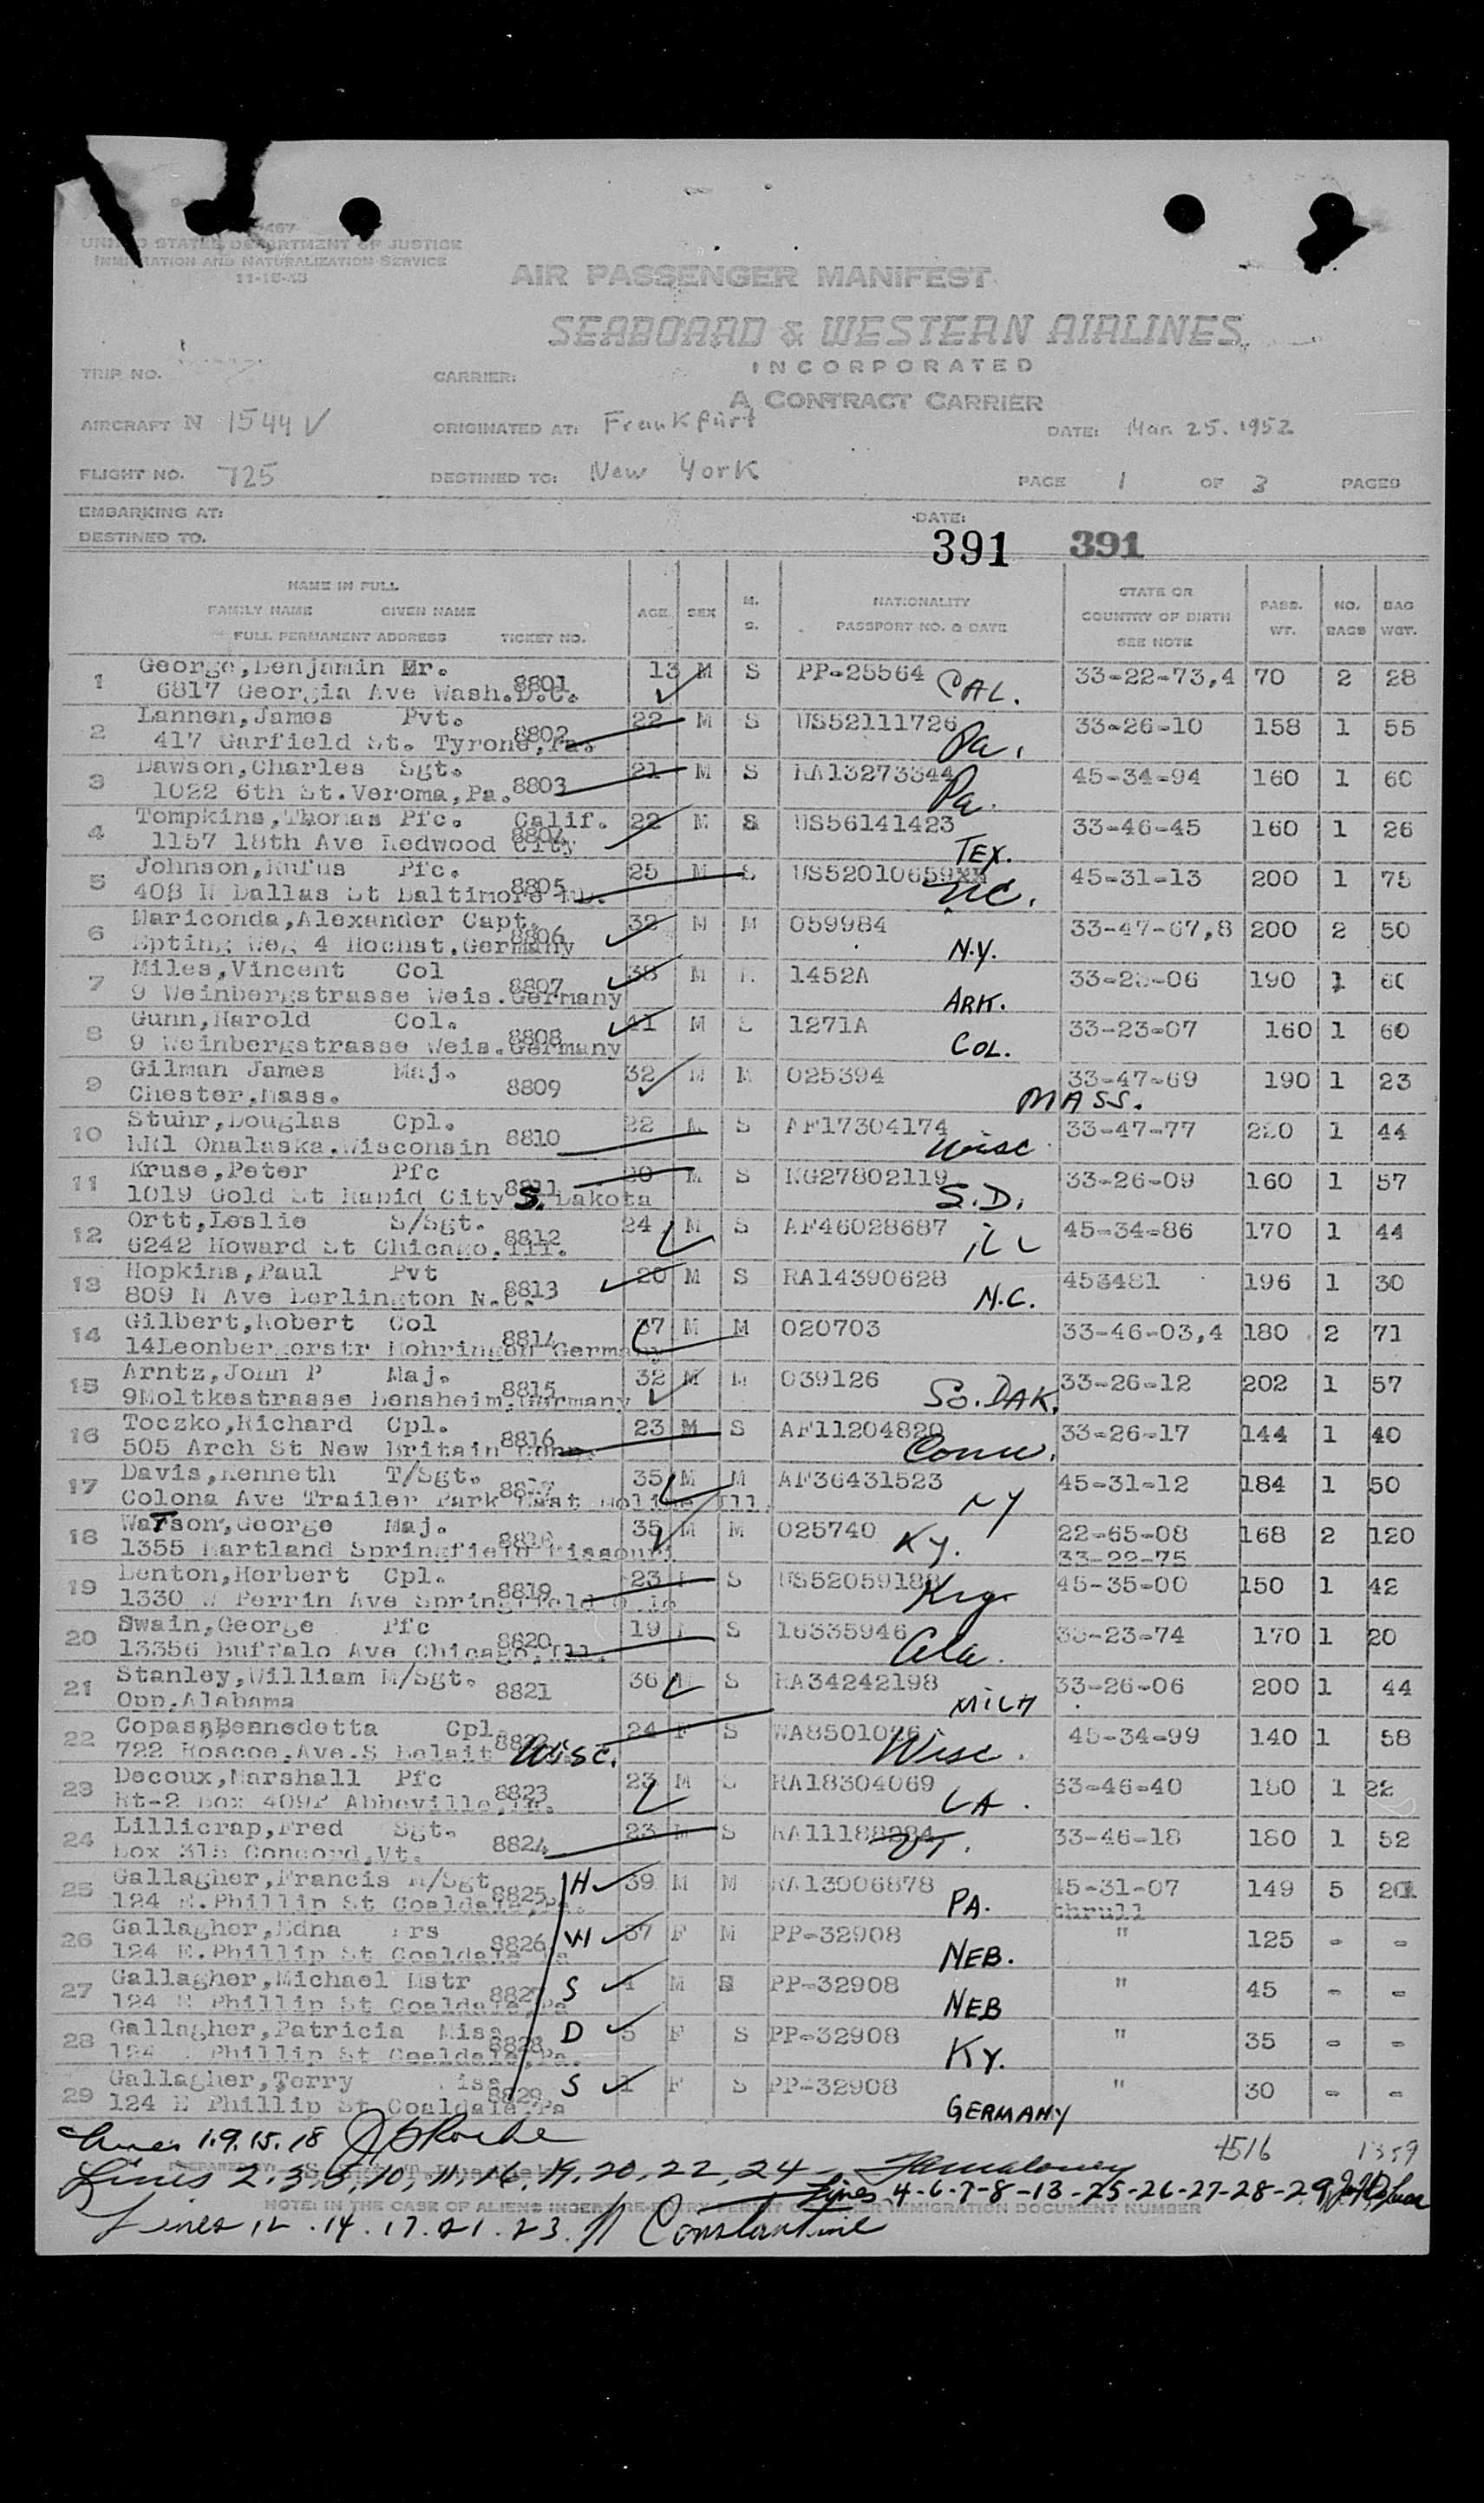 UNITED STATES DEPARTMENT OF JUSTICE
IMMIGRATION AND NATURALIZATION SERVICE
11-15-45
AIR PASSENGER MANIFEST
SEABOARD & WESTERN AIRLINES
INCORPORATED
A CONTRACT CARRIER
TRIP NO. CARRIER:
AIRCRAFT N 1544V ORIGINATED AT: Frankfurt DATE: Mar 25. 1952
FLIGHT NO. 725 DESTINED TO: New York PAGE 1 OF 3 PAGES
EMBARKING AT: DATE:
DESTINED TO. 391 391
NAME IN FULL
FAMILY NAME GIVEN NAME
FULL PERMANENT ADDRESS TICKET NO. AGE SEX M. S. NATIONALITY PASSPORT NO. & DATE STATE OR COUNTRY OF BIRTH SEE NOTE PASS. WT. NO. BAGS BAG WGT.
1 George,Benjamin Mr. 8801 13 M S PP-25564 CAL. 33-22-73,4 70 2 28
6817 Georgia Ave Wash.D.C.
2 Lannen,James Pvt. 8802 22 M S US52111726 Pa. 33-26-10 158 1 55
417 Garfield St. Tyrone,Pa.
3 Dawson,Charles Sgt. 8803 21 M S RA13273344 Pa. 45-34-94 160 1 60
1022 6th St.Veroma,Pa.
4 Tompkins,Thomas Pfc. Calif. 8804 22 M S US56141423 TEX. 33-46-45 160 1 26
1157 18th Ave Redwood City
5 Johnson,Rufus Pfc. 8805 25 M S US52010659XX N.C. 45-31-13 200 1 75
408 N Dallas St Baltimore MD.
6 Mariconda,Alexander Capt. 8806 32 M M 059984 N.Y. 33-47-67,8 200 2 50
Epting Weg 4 Hochst,Germany
7 Miles,Vincent Col 8807 38 M 1452A ARK. 190 1 60
9 Weinbergstrasse Weis.Germany
8 Gunn,Harold Col. 8808 41 M S 1271A COL. 33-23-07 160 1 60
9 Weinbergstrasse Weis.Germany
9 Gilman James Maj. 8809 32 M M 025394 MASS. 33-47-69 190 1 23
Chester,Mass.
10 Stuhr,Douglas Cpl. 8810 22 M S AF17304174 Wisc 33-47-77 220 1 44
RR1 Onalaska,Wisconsin
11 Kruse,Peter Pfc 8811 M S NG27802119 S.D. 33-26-09 160 1 57
1019 Gold St Rapid City S. Dakota
12 Ortt,Leslie S/Sgt. 8812 24 M S AF46028687 ILL 45-34-86 170 1 44
6242 Howard St Chicago,Ill.
13 Hopkins,Paul Pvt 8813 20 M S RA14390628 N.C. 453481 196 1 30
809 N Ave Berlington N.C.
14 Gilbert,Robert Col 8814 37 M M 020703 33-46-03,4 180 2 71
14Leonbergerstr Mohringen Germany
15 Arntz,John P Maj. 8815 32 M M 039126 SO. DAK. 33-26-12 202 1 57
9Moltkestrasse Bensheim,Germany
16 Toczko,Richard Cpl. 8816 23 M S AF11204820 Conn. 33-26-17 144 1 40
505 Arch St New Britain Conn.
17 Davis,Kenneth T/Sgt. 8817 35 M M AF36431523 NY 45-31-12 184 1 50
Colona Ave Trailer Park East Moline Ill.
18 Watson,George Maj. 8818 35 M M 025740 Ky. 22-65-08 168 2 120
1355 Hartland Springfield Missouri 33-22-75
19 Denton,Herbert Cpl. 8819 23 S US52059188 Ky. 45-35-00 150 1 42
1330 W Perrin Ave Springfield Ohio
20 Swain,George Pfc 8820 19 S 16335946 Ala. 33-23-74 170 1 20
13356 Buffalo Ave Chicago,Ill.
21 Stanley,William M/Sgt. 8821 36 M S RA34242198 MICH 33-26-06 200 1 44
Opp,Alabama
22 Copass,Bennedetta Cpl. 8822 24 F S WA8501026 Wisc. 45-34-99 140 1 58
722 Roscoe.Ave.S Beloit WISC.
23 Decoux,Marshall Pfc 8823 23 M S RA18304069 LA. 33-46-40 180 1 22
Rt-2 Box 409P Abbeville,La.
24 Lillicrap,Fred Sgt. 8824 23 M S VT. 33-46-18 180 1 52
Box 315 Concord,Vt.
25 Gallagher,Francis M/Sgt 8825 H 39 M M RA13006878 PA. 45-31-07 149 5 201
124 E.Phillip St Coaldale,Pa. thrull
26 Gallagher,Edna Mrs 8826 W 37 F M PP-32908 NEB. " 125 - -
124 E.Phillip St Coaldale Pa
27 Gallagher,Michael Mstr 8827 S 4 M S PP-32908 NEB " 45 - -
124 E Phillip St Coaldale,Pa
28 Gallagher,Patricia Miss 8828 D 5 F S PP-32908 KY. " 35 - -
124 E Phillip St Coaldale,Pa.
29 Gallagher,Terry Miss 8829 S 1 F S PP-32908 GERMANY " 30 - -
124 E Phillip St Coaldale,Pa
4516 1359
Lines 1.9.15.18 Roche
Lines 2.3.5.10,11,16,19,20,22,24
Lines 4-6-7-8-13-25-26-27-28-29
NOTE: IN THE CASE OF ALIENS INSERT RE-ENTRY PERMIT OR OTHER IMMIGRATION DOCUMENT NUMBER
Lines 12.14.17.21.23. Constantine